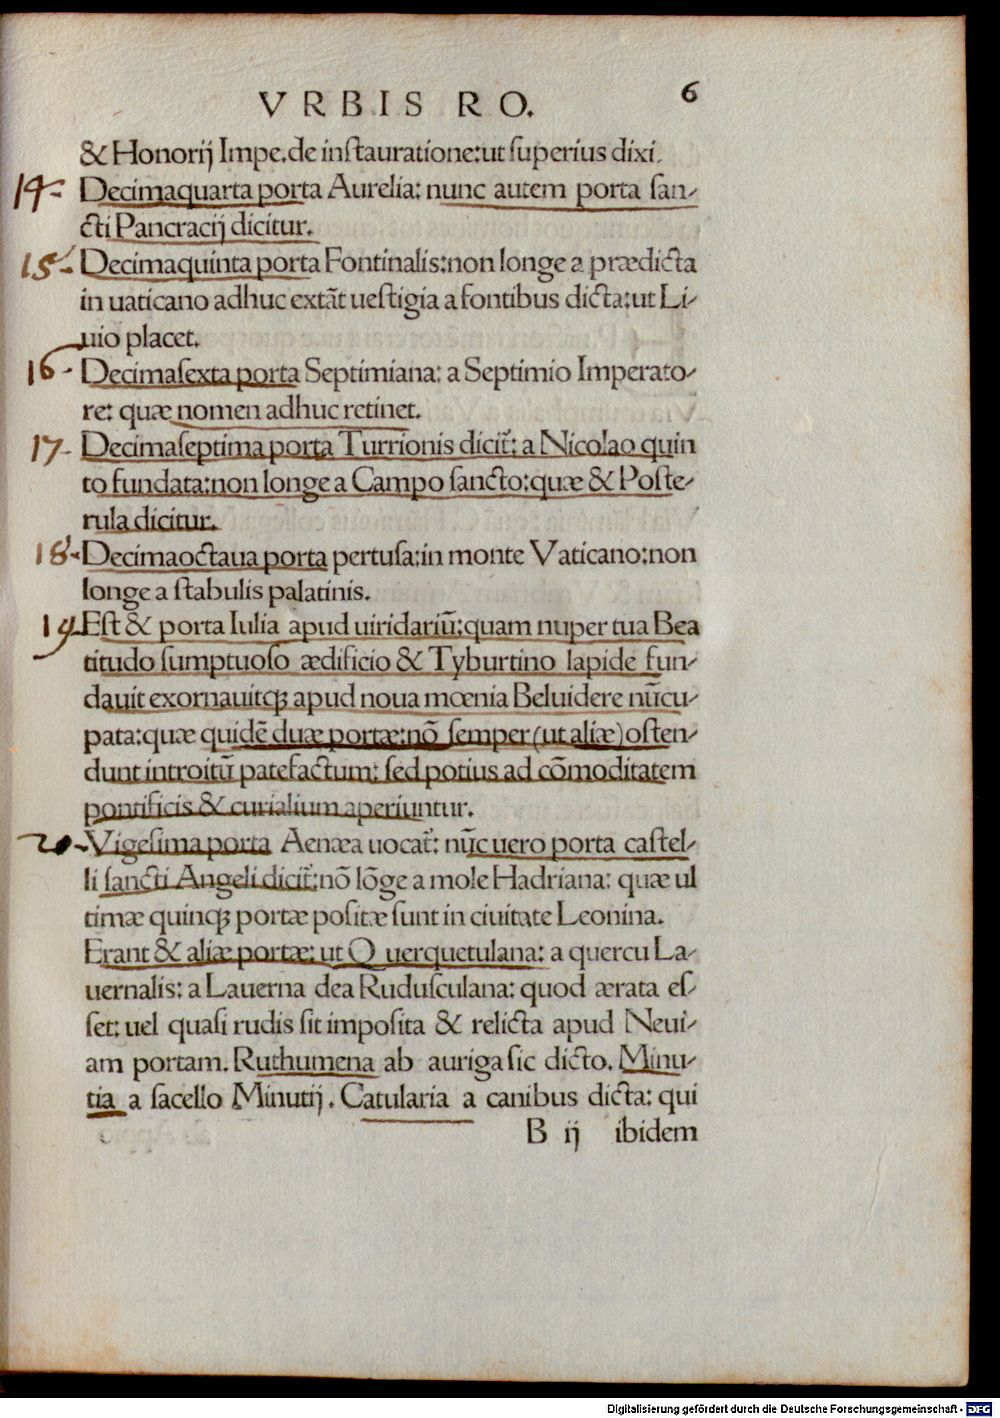 VRBIS RO. 6
& Honorij Impe.de inſtauratione:ut ſuperius dixi.
14- Decimaquarta porta Aurelia: nunc autem porta ſan-
cti Pancracij dicitur.
15- Decimaquinta porta Fontinalis:non longe a prædicta
in uaticano adhuc extāt ueſtigia a fontibus dicta:ut Li-
uio placet.
16- Decimaſexta porta Septimiana: a Septimio Imperato-
re: quæ nomen adhuc retinet.
17- Decimaſeptima porta Turrionis dicit̃: a Nicolao quin
to fundata:non longe a Campo ſancto:quæ & Poſte-
rula dicitur.
18- Decimaoctaua porta pertuſa:in monte Vaticano:non
longe a ſtabulis palatinis.
19- Eſt & porta Iulia apud uiridariū:quam nuper tua Bea
titudo ſumptuoſo ædificio & Tyburtino lapide fun-
dauit exornauitqꝫ apud noua mœnia Beluidere nūcu-
pata:quæ quidē duæ portæ:nō ſemper (ut aliæ) oſten-
dunt introitū patefactum: ſed potius ad cōmoditatem
pontificis & curialium aperiuntur.
20- Vigeſima porta Aenæa uocat̃: nūc uero porta caſtel-
li ſancti Angeli dicit̃:nō lōge a mole Hadriana: quæ ul
timæ quinqꝫ portæ poſitæ ſunt in ciuitate Leonina.
Erant & aliæ portæ: ut Q uerquetulana: a quercu La-
uernalis: a Lauerna dea Ruduſculana: quod ærata eſ-
ſet: uel quaſi rudis ſit impoſita & relicta apud Neui-
am portam. Ruthumena ab auriga ſic dicto. Minu-
tia a ſacello Minutij. Catularia a canibus dicta: qui
B ij ibidem
Digitalisierung gefördert durch die Deutsche Forschungsgemeinschaft - DFG